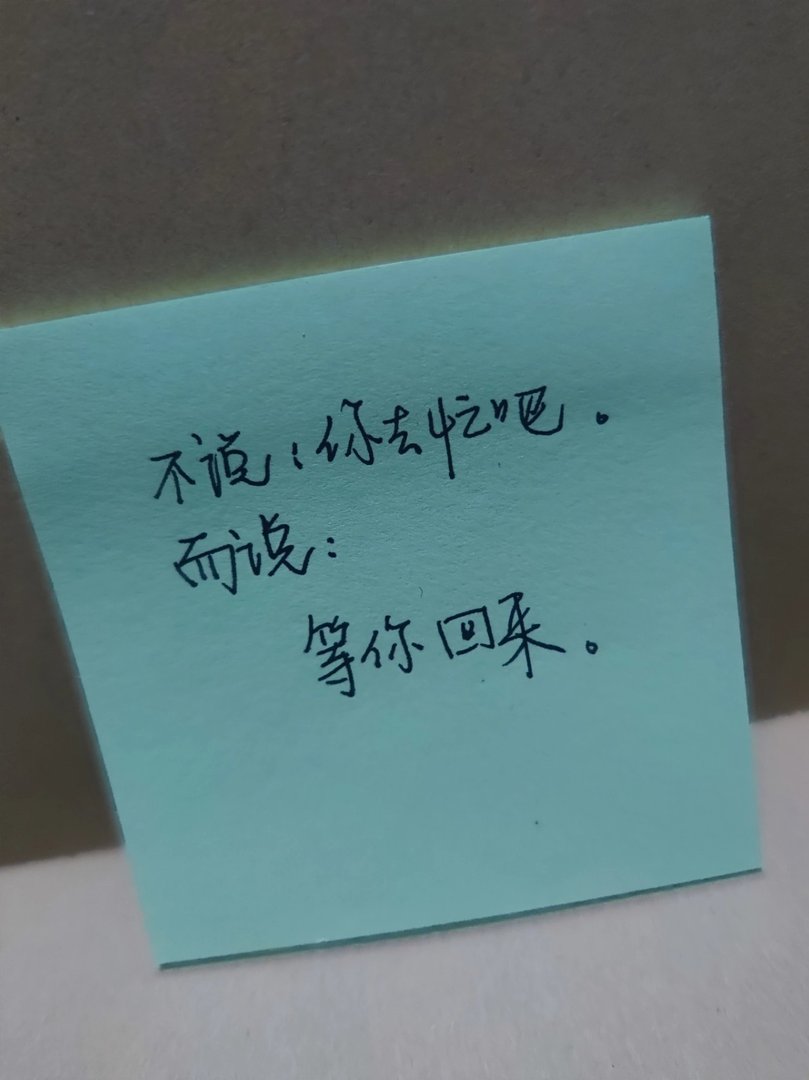 不说：你去忙吧。
而说：
等你回来。